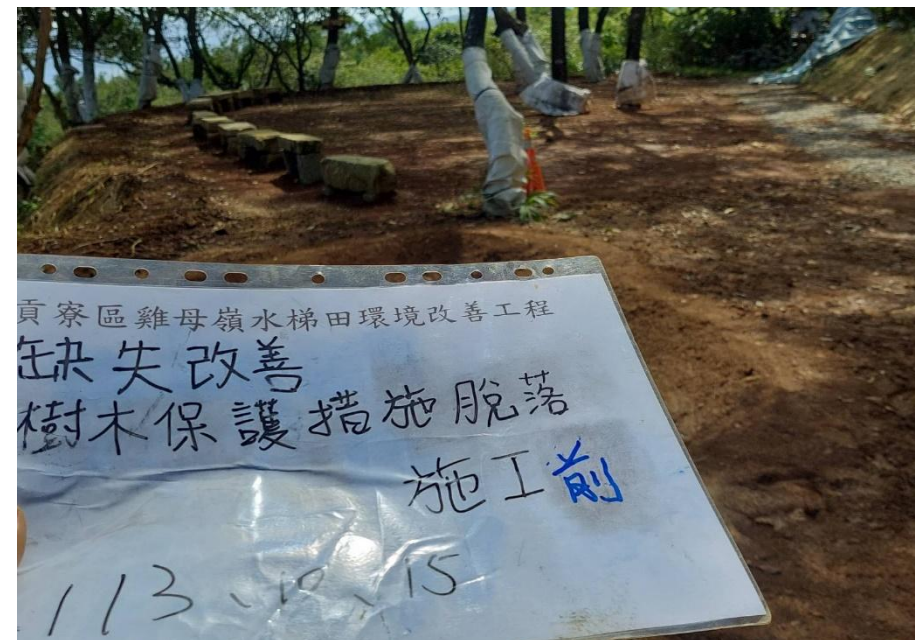 貢寮區雞母嶺水梯田環境改善工程
缺失改善
樹木保護措施脫落
施工前
113、10、15